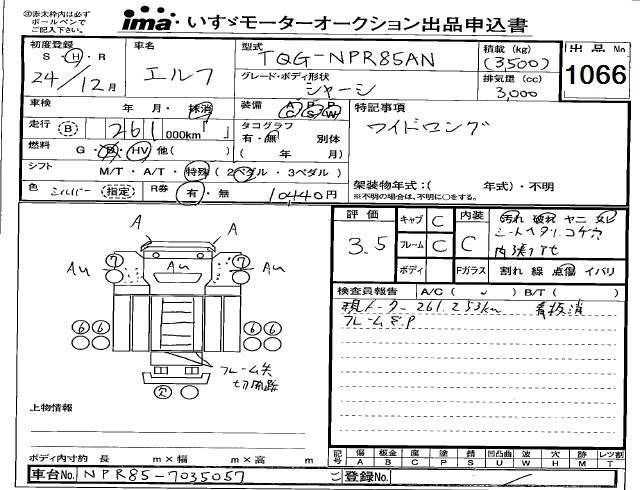 ima いすゞモーターオークション出品申込書
※赤太枠内は必ずボールペンでご記入下さい。
初度登録 S・H・R 24/12月
車名 エルフ
型式 TQG-NPR85AN
積載 (kg) (3500)
出品No 1066
グレード・ボディ形状 シャーシ
排気量 (cc) 3,000
車検 年 月・抹消
装備 AC PS PW
特記事項
走行 (B) 261 000km
タコグラフ 有・無 別体
ワイドロング
燃料 G・B・HV 他( )
( 年 月)
シフト M/T・A/T・特殊 (2ペダル・3ペダル)
架装物年式:( 年式)・不明
※不明の場合は、不明に○をする。
色 シルバー (指定) R券 有・無 10440円
評価 3.5
キャブ C 内装 C 汚れ 破れ ヤニ
フレーム C シートヘタリ、コゲ穴
ボディ Fガラス 割れ 線 点傷 イバリ
検査員報告 A/C ( ) B/T ( )
現メーター 261,253km 看板消
A A
7 Au Au Au 7
6 6 6 6
フレーム
欠
上物情報
ボディ内寸約 長 m×幅 m×高 m
記号 傷 A 板金 B 腐 C 塗 P 錆 S 凹凸曲 U 波 W 穴 H 跡 M レツ割 T
車台No. NPR85-7035057
ご登録No.